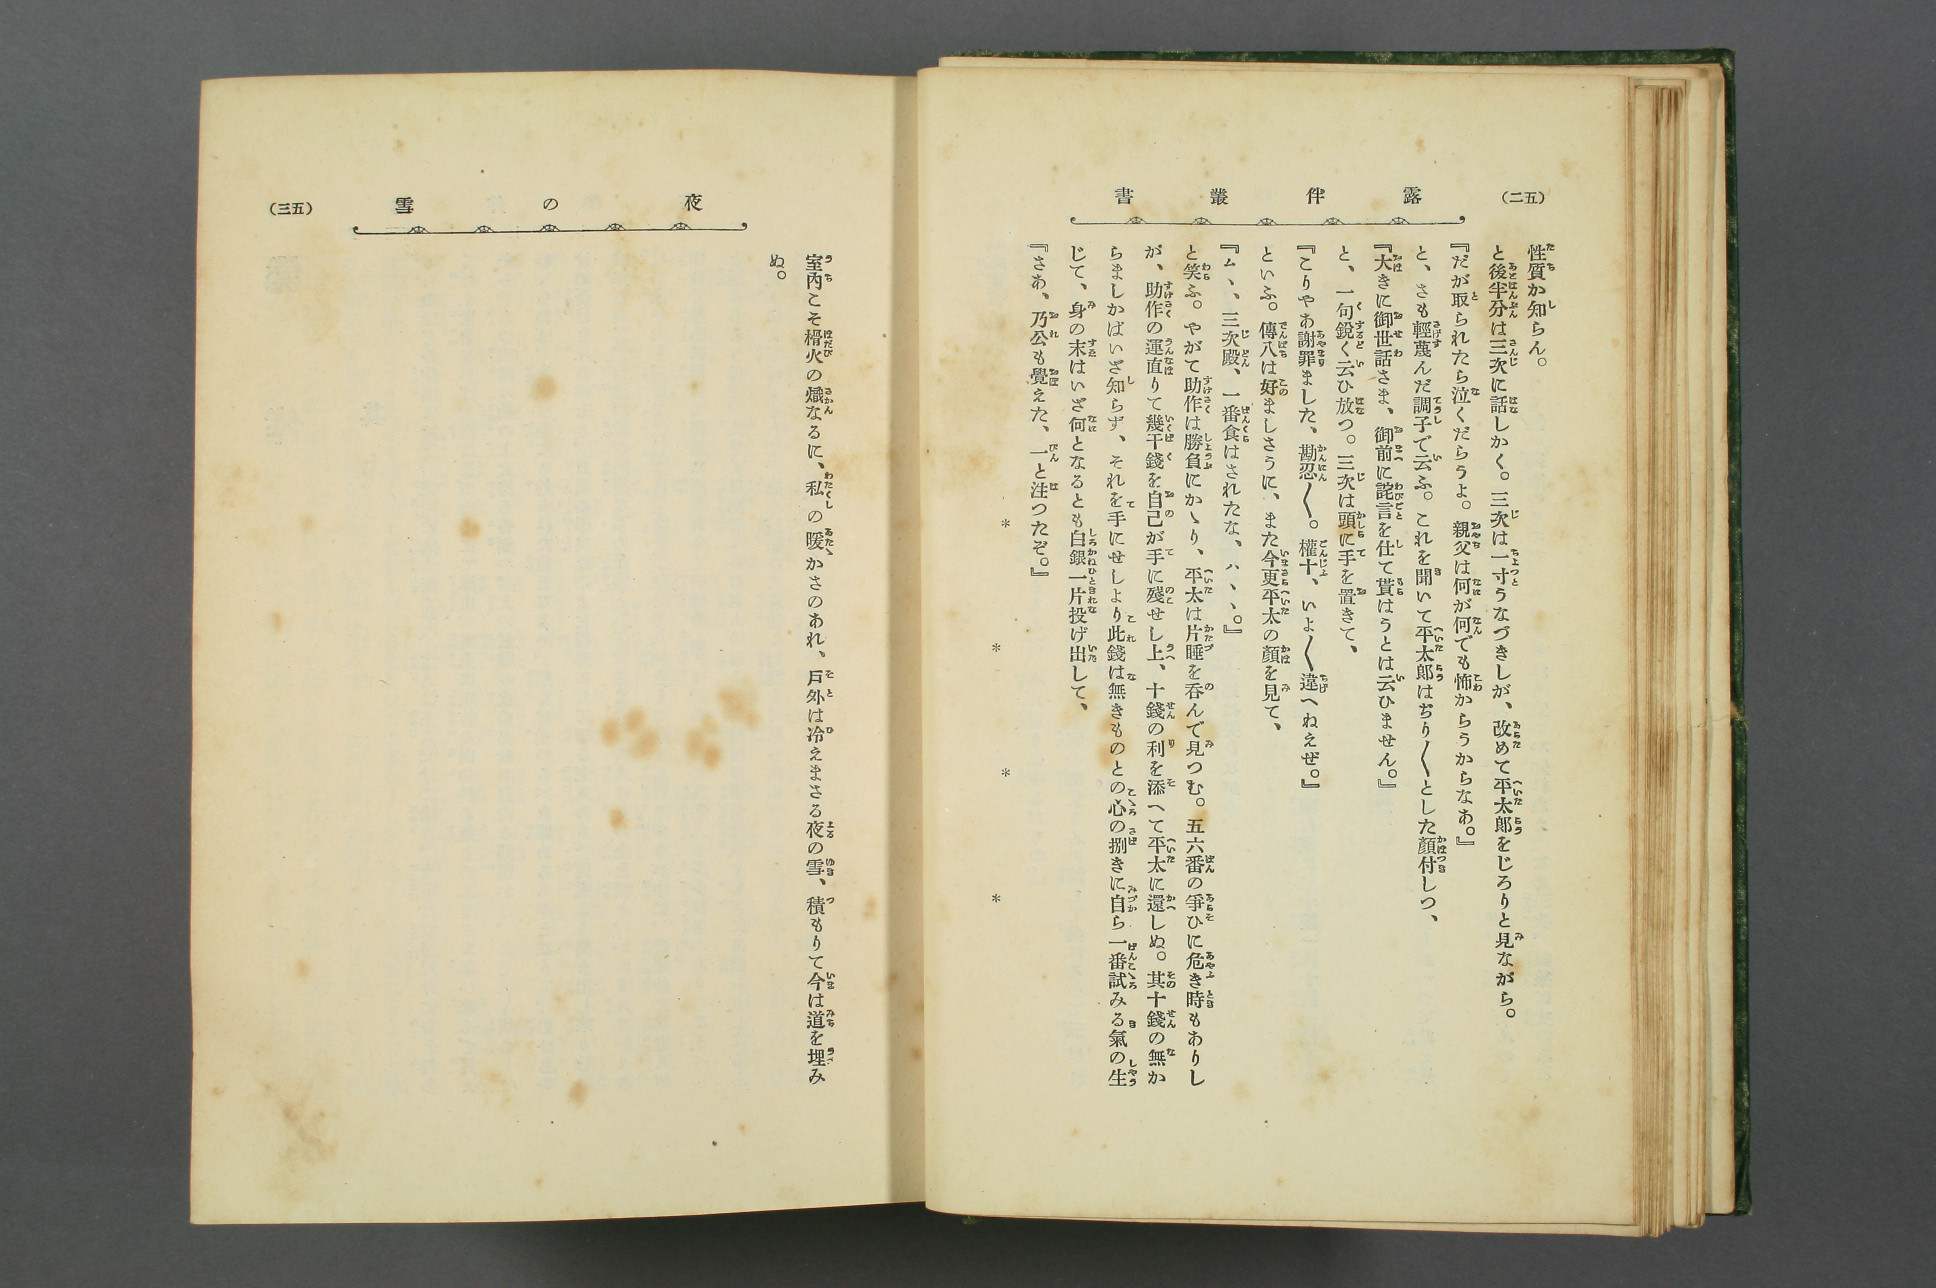 (二五)
露伴叢書
性質か知らん。
と後半分は三次に話しかく。三次は一寸うなづきしが、改めて平太郎をじろりと見ながら。
『だが取られたら泣くだらうよ。親父は何が何でも怖からうからなあ。』
と、さも輕蔑んだ調子で云ふ。これを聞いて平太郎はぢり〱とした顏付しつ、
『大きに御世話さま、御前に詫言を仕て貰はうとは云ひません。』
と、一句銳く云ひ放つ。三次は頭に手を置きて、
『こりやあ謝罪ました、勘忍〱。權十、いよ〱違へねえぜ。』
といふ。傳八は好ましさうに、また今更平太の顏を見て、
『ム、、三次殿、一番食はされたな、ハ、、。』
と笑ふ。やがて助作は勝負にかゝり、平太は片唾を呑んで見つむ。五六番の爭ひに危き時もありし
が、助作の運直りて幾干錢を自己が手に殘せし上、十錢の利を添へて平太に還しぬ。其十錢の無か
らましかばいざ知らず、それを手にせしより此錢は無きものとの心の捌きに自ら一番試みる氣の生
じて、身の末はいざ何となるとも白銀一片投げ出して、
『さあ、乃公も覺えた、一と注つたぞ。』
* * * *
夜の雪
(三五)
室內こそ榾火の熾なるに、私の暖かさのあれ、戶外は冷えまさる夜の雪、積もりて今は道を埋み
ぬ。